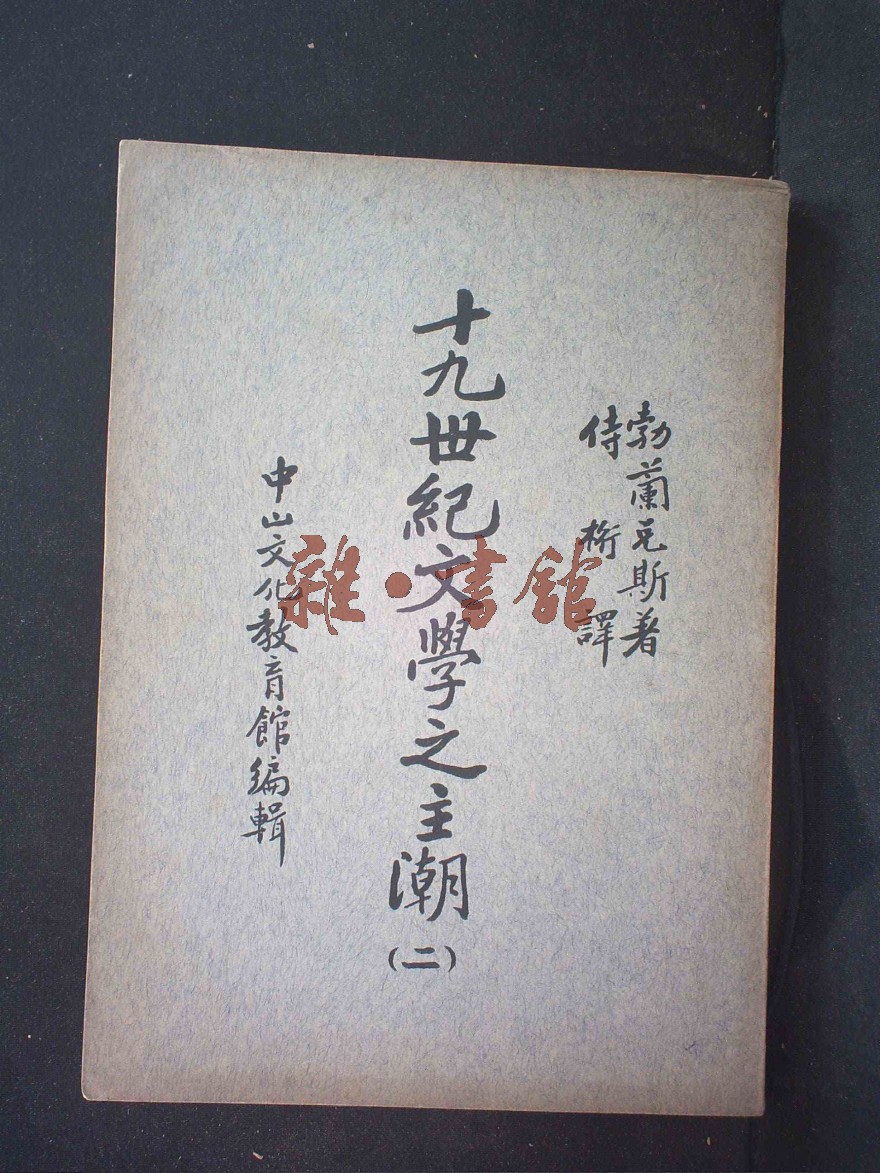 勃蘭兌斯著
侍桁譯
十九世紀文學之主潮
(二)
中山文化教育館編輯
雜·書館